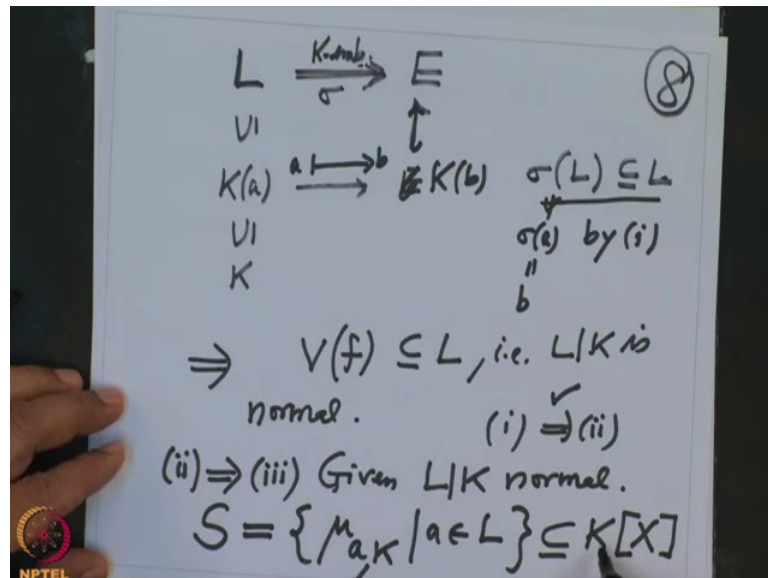 L —K-emb.→ E
σ
⑧
∪| ↑
K(a) a ↦ b → K(b) σ(L) ⊆ L
∪| σ(a) by (i)
K ||
b
⇒ V(f) ⊆ L, i.e. L|K is
normal. (i) ⇒ (ii) ✓
(ii) ⇒ (iii) Given L|K normal.
S = { μ_{a,K} | a ∈ L } ⊆ K[X]
NPTEL